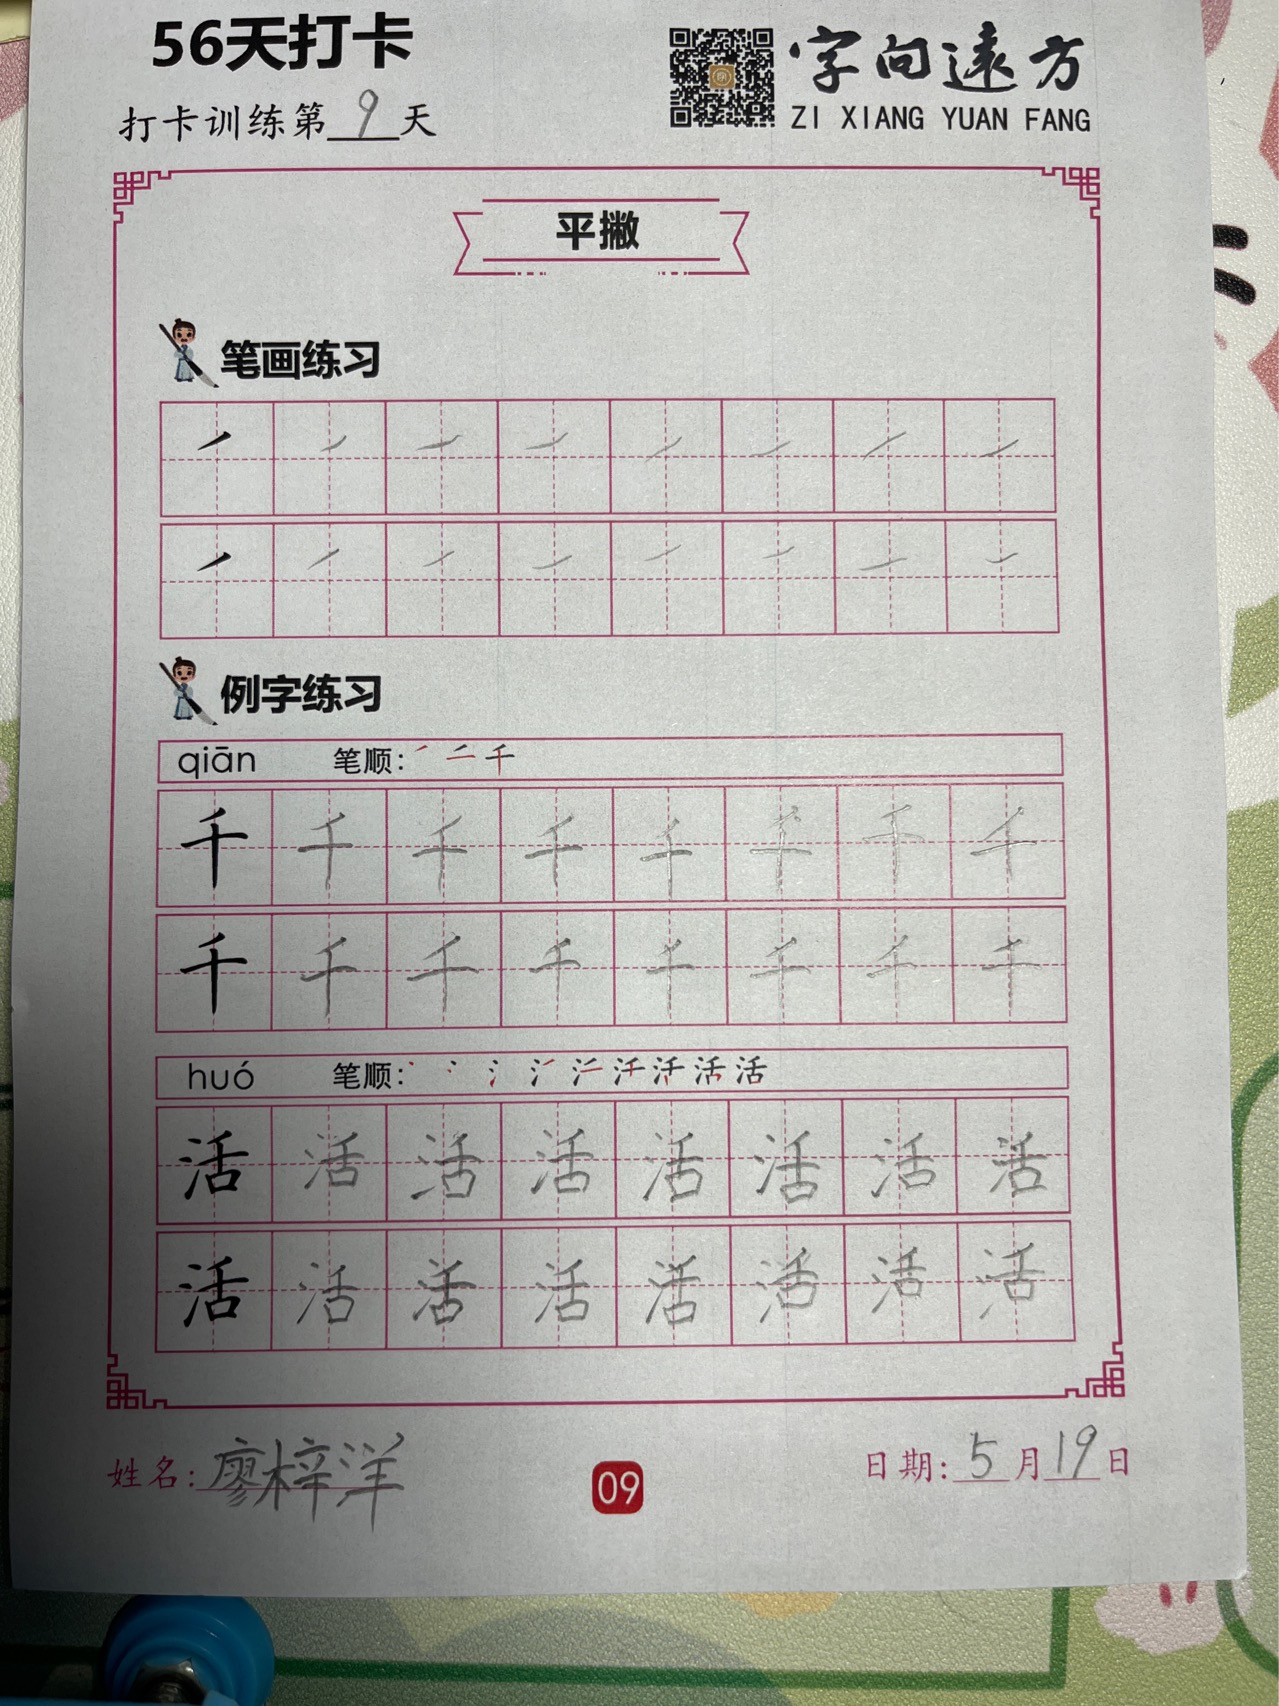 56天打卡
字向遠方
打卡训练第9天
ZI XIANG YUAN FANG
平撇
笔画练习
例字练习
qiān 笔顺:
千 千 千 千 千 千 千 千
千 千 千 千 千 千 千 千
huó 笔顺: 活
活 活 活 活 活 活 活 活
活 活 活 活 活 活 活 活
姓名: 廖梓洋
09
日期: 5月19日